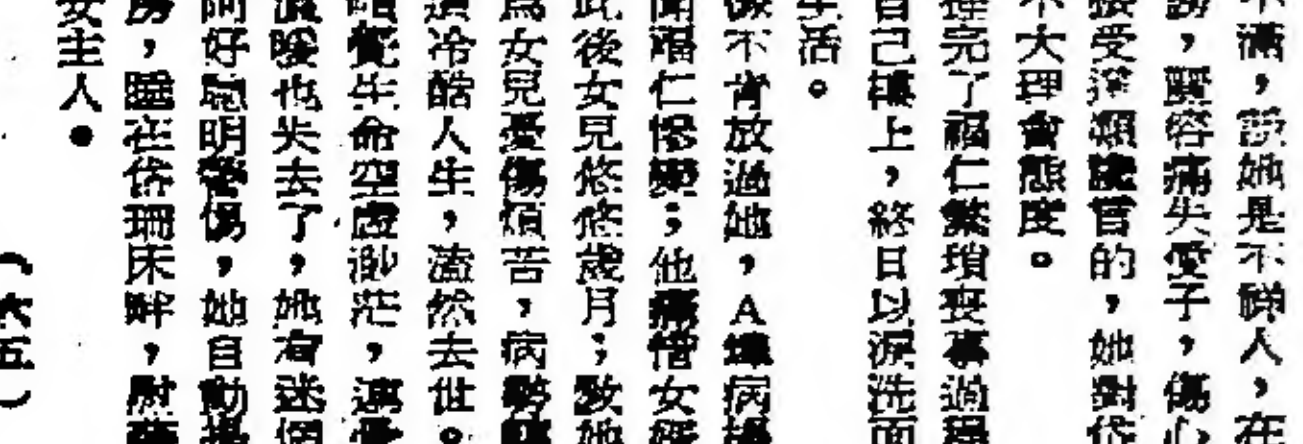 不滿，說她是不祥人，在
謗，麗容痛失愛子，傷心
接受這類讒言的，她對岱
不大理會態度。
完了福仁繁瑣喪事過程
自己樓上，終日以淚洗面
生活。
不肯放過她，A 病
聞福仁慘變；他痛惜女婿
此後女兒悠悠歲月；致她
為女兒憂傷煩苦，病勢
這冷酷人生，溘然去世。
覺生命空虛渺茫，連
溫暖也失去了，她有迷惘
阿好聰明警惕，她自動搬
房，睡在岱珊床畔，慰藉
女主人。●
（六五）